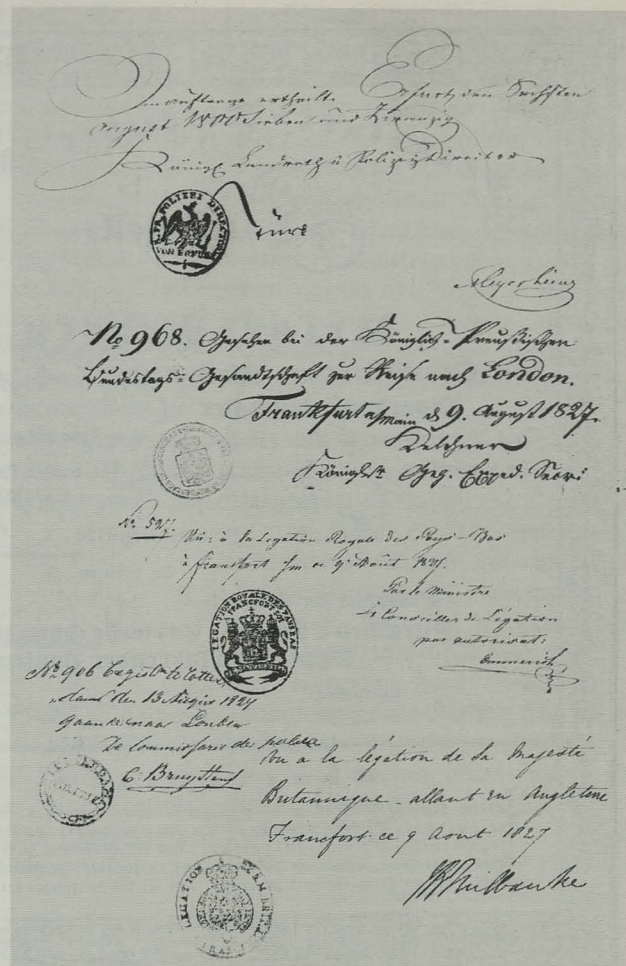 Im Auftrage ertheilt. Erfurt, den Sechsten
August 1800 Sieben und Zwanzig
Königl. Landrath u. Polizei Director
POLIZEI DIRECTOR
VON ERFURT
Türk
No 968. Gesehen bei der Königlich-Preußischen
Bundestags-Gesandtschaft zur Reise nach London.
Frankfurt a/Main d 9. August 1827.
Kelchner
Königl. Geh. Exped. Secr.
No.
Vu à la Légation Royale des Pays-Bas
à francfort s/m ce 9 Août 1827.
Par le Ministre
Le Conseiller de Légation
par autorisat:
Emmerich
LEGATION ROYALE DES PAYS BAS
FRANCFORT
No 906
dam den 13 Augus 1827
gaande naar Londen
De Commissaris de police
Vu a la légation de Sa Majesté
Britannique - allant en Angleterre
Francfort ce 9 Aout 1827
LEGATION